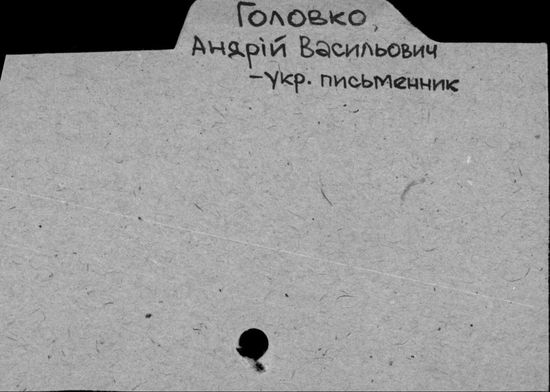 Головко,
Андрій Васильович
-укр. письменник